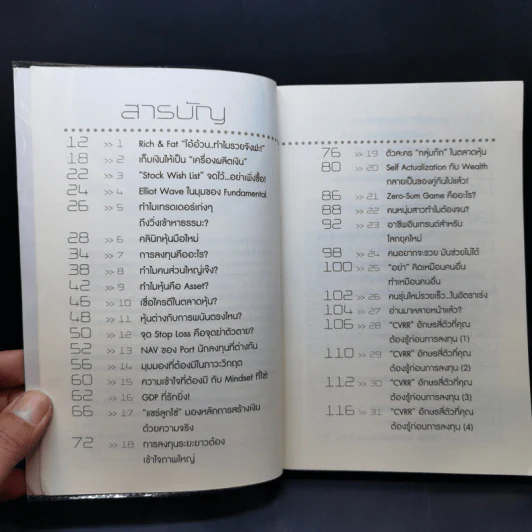 สารบัญ
12 >> 1 Rich & Fat "ไอ้อ้วน..ทำไมรวยจังฟะ!"
18 >> 2 เก็บเงินให้เป็น "เครื่องผลิตเงิน"
22 >> 3 "Stock Wish List" จดไว้...อย่าเพิ่งซื้อ!
24 >> 4 Elliot Wave ในมุมของ Fundamental
26 >> 5 ทำไมเทรดเดอร์เก่งๆ
ถึงวิ่งเข้าหาธรรมะ?
28 >> 6 คลินิกหุ้นมือใหม่
34 >> 7 การลงทุนคืออะไร?
38 >> 8 ทำไมคนส่วนใหญ่เจ๊ง?
42 >> 9 ทำไมหุ้นคือ Asset?
46 >> 10 เชื่อใครดีในตลาดหุ้น?
48 >> 11 หุ้นต่างกับการพนันตรงไหน?
50 >> 12 จุด Stop Loss คือจุดฆ่าตัวตาย?
52 >> 13 NAV ของ Port นักลงทุนที่ต่างกัน
56 >> 14 มุมมองที่ต้องมีในภาวะวิกฤต
60 >> 15 ความเข้าใจที่ต้องมี กับ Mindset ที่ใช่!
62 >> 16 GDP ที่รักยิ่ง!
66 >> 17 "แชร์ลูกโซ่" มองหลักการสร้างเงิน
ด้วยความจริง
72 >> 18 การลงทุนระยะยาวต้อง
เข้าใจภาพใหญ่
76 >> 19 ตัวละคร "กลุ่มกัก" ในตลาดหุ้น
80 >> 20 Self Actualization กับ Wealth
กลายเป็นของคู่กันไปแล้ว!
86 >> 21 Zero-Sum Game คืออะไร?
88 >> 22 คนหนุ่มสาวทำไมต้องจน?
92 >> 23 อาชีพอินเทรนด์สำหรับ
โลกยุคใหม่
98 >> 24 คนอยากจะรวย มันช่วยไม่ได้
100 >> 25 "อย่า" คิดเหมือนคนอื่น
ทำเหมือนคนอื่น
102 >> 26 คนรุ่นใหม่รวยเร็ว...ในอัตราเร่ง
104 >> 27 อ่านมาหลายหน้าแล้ว?
106 >> 28 "CVRR" อักษรสี่ตัวที่คุณ
ต้องรู้ก่อนการลงทุน (1)
110 >> 29 "CVRR" อักษรสี่ตัวที่คุณ
ต้องรู้ก่อนการลงทุน (2)
112 >> 30 "CVRR" อักษรสี่ตัวที่คุณ
ต้องรู้ก่อนการลงทุน (3)
116 >> 31 "CVRR" อักษรสี่ตัวที่คุณ
ต้องรู้ก่อนการลงทุน (4)